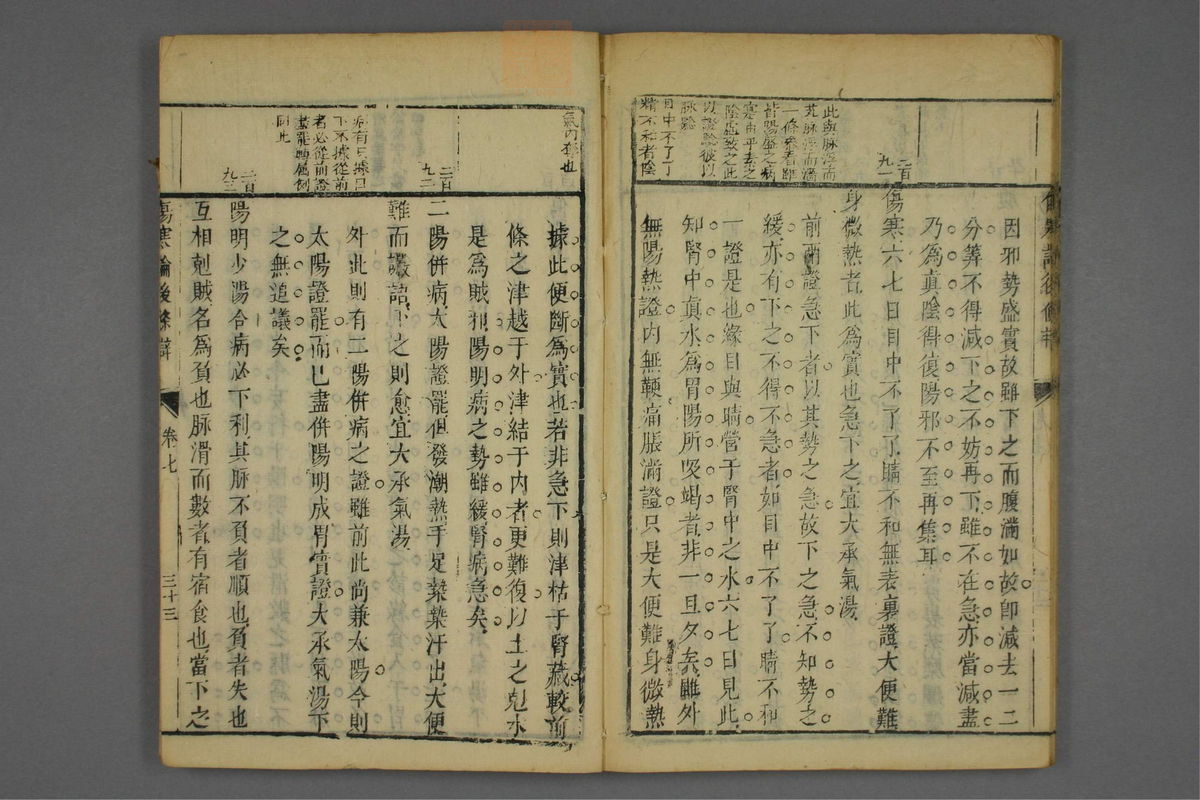 因邪勢盛實故雖下之而腹滿如故卽減去一二
分筭不得減下之不妨再下雖不在急亦當減盡
乃爲眞陰得復陽邪不至再集耳
二百九一
傷寒六七日目中不了了睛不和無表裏證大便難
身微熱者此爲實也急下之宜大承氣湯
此與脉浮而
芤脉浮而濇
一條參看
皆陽盛之病
以證驗彼以
脉驗
目中不了了
睛不和者陰
前兩證急下者以其勢之急故下之急不知勢之
緩亦有下之不得不急者如目中不了了睛不和
一證是也緣目與睛營于腎中之水六七日見此
知腎中眞水爲胃陽所吸竭者非一旦夕矣雖外
無陽熱證內無鞕痛脹滿證只是大便難身微熱
氣內奪也
據此便斷爲實也若非急下則津枯于腎藏較前
條之津越于外津結于內者更難復以土之剋水
是爲賊邪陽明病之勢雖緩腎病急矣
二百九二
二陽併病太陽證罷但發潮熱手足漐漐汗出大便
難而讝語下之則愈宜大承氣湯
病有只據目
下不據從前
者必從前證
盡罷轉屬例
同此
外此則有二陽併病之證雖前此尚兼太陽今則
太陽證罷而已盡併陽明成胃實證大承氣湯下
之無追議矣
二百九三
陽明少陽合病必下利其脉不負者順也負者失也
互相剋賊名爲負也脉滑而數者有宿食也當下之
傷寒論後條辯
卷七
三十三